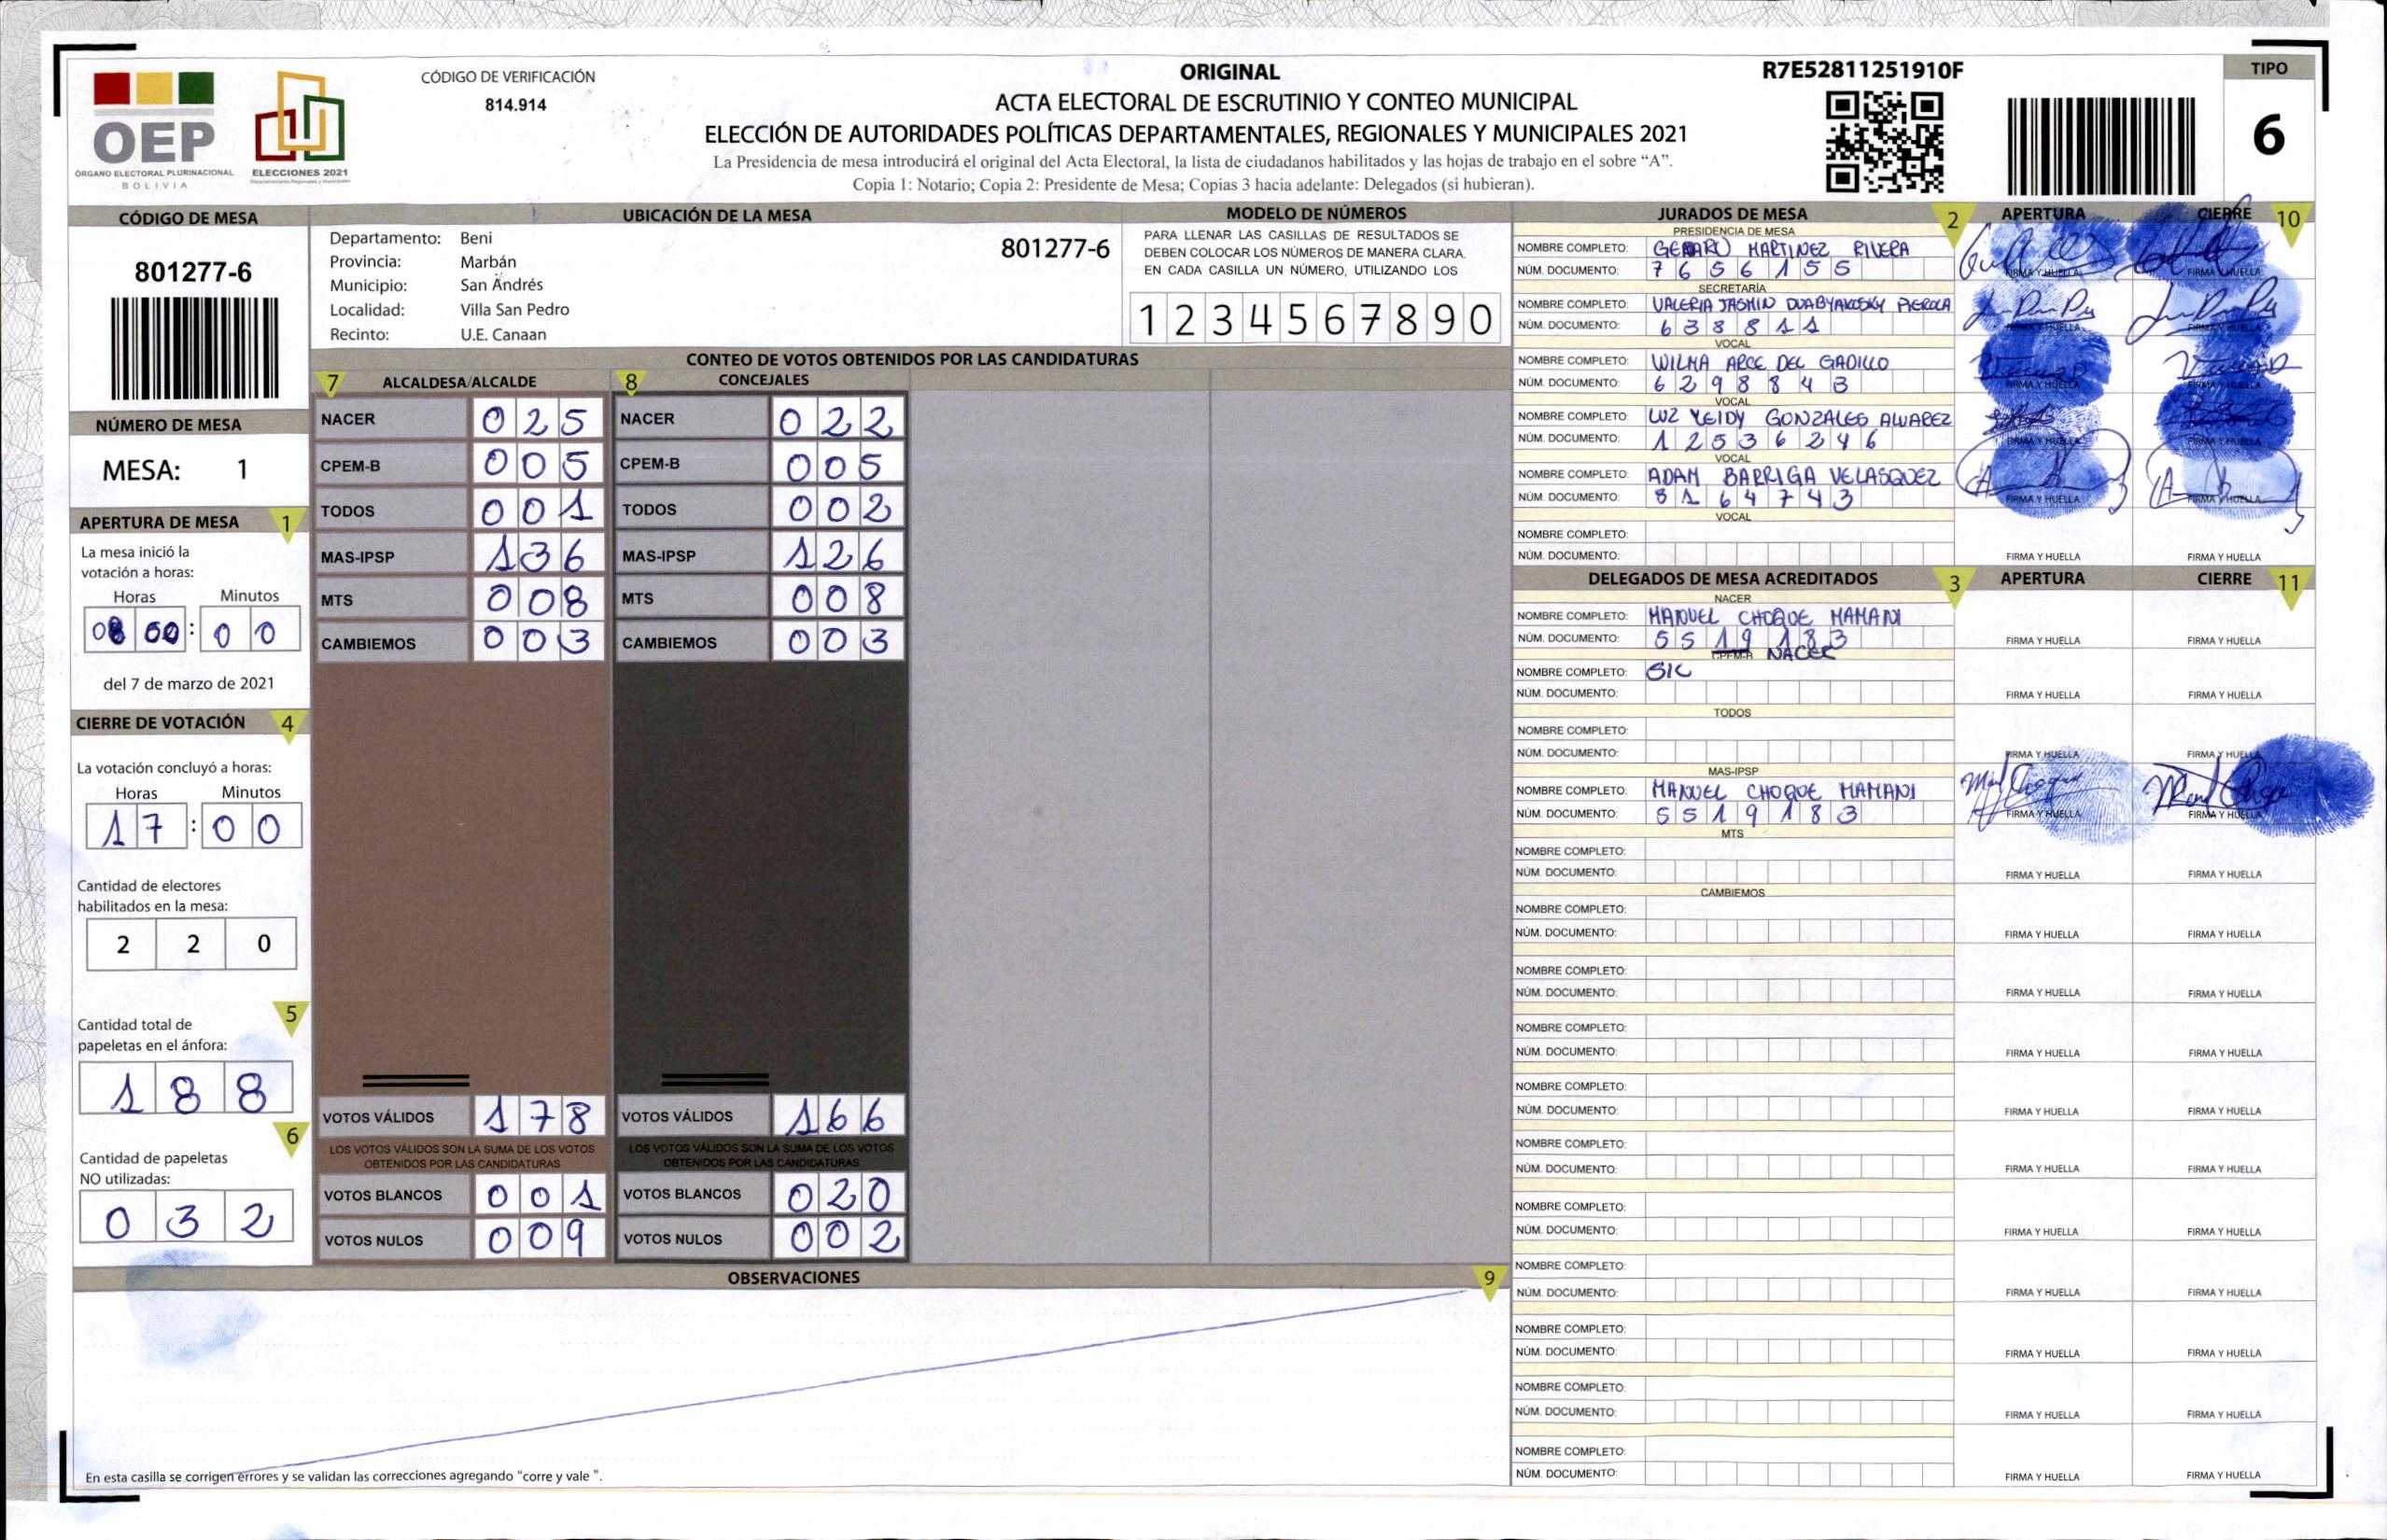 OEP
ÓRGANO ELECTORAL PLURINACIONAL
BOLIVIA
ELECCIONES 2021
CÓDIGO DE VERIFICACIÓN
814.914
ORIGINAL
ACTA ELECTORAL DE ESCRUTINIO Y CONTEO MUNICIPAL
ELECCIÓN DE AUTORIDADES POLÍTICAS DEPARTAMENTALES, REGIONALES Y MUNICIPALES 2021
La Presidencia de mesa introducirá el original del Acta Electoral, la lista de ciudadanos habilitados y las hojas de trabajo en el sobre “A”.
Copia 1: Notario; Copia 2: Presidente de Mesa; Copias 3 hacia adelante: Delegados (si hubieran).
R7E52811251910F
TIPO
6
CÓDIGO DE MESA
801277-6
NÚMERO DE MESA
MESA: 1
APERTURA DE MESA 1
La mesa inició la
votación a horas:
Horas Minutos
: 0 0
del 7 de marzo de 2021
CIERRE DE VOTACIÓN 4
La votación concluyó a horas:
Horas Minutos
1 7 : 0 0
Cantidad de electores
habilitados en la mesa:
2 2 0
5
Cantidad total de
papeletas en el ánfora:
1 8 8
6
Cantidad de papeletas
NO utilizadas:
0 3 2
UBICACIÓN DE LA MESA
Departamento: Beni
Provincia: Marbán
Municipio: San Andrés
Localidad: Villa San Pedro
Recinto: U.E. Canaan
801277-6
MODELO DE NÚMEROS
PARA LLENAR LAS CASILLAS DE RESULTADOS SE
DEBEN COLOCAR LOS NÚMEROS DE MANERA CLARA.
EN CADA CASILLA UN NÚMERO, UTILIZANDO LOS
1 2 3 4 5 6 7 8 9 0
CONTEO DE VOTOS OBTENIDOS POR LAS CANDIDATURAS
7 ALCALDESA/ALCALDE 8 CONCEJALES
NACER 0 2 5 NACER 0 2 2
CPEM-B 0 0 5 CPEM-B 0 0 5
TODOS 0 0 1 TODOS 0 0 2
MAS-IPSP 1 3 6 MAS-IPSP 1 2 6
MTS 0 0 8 MTS 0 0 8
CAMBIEMOS 0 0 3 CAMBIEMOS 0 0 3
VOTOS VÁLIDOS 1 7 8 VOTOS VÁLIDOS 1 6 6
LOS VOTOS VÁLIDOS SON LA SUMA DE LOS VOTOS LOS VOTOS VÁLIDOS SON LA SUMA DE LOS VOTOS
OBTENIDOS POR LAS CANDIDATURAS OBTENIDOS POR LAS CANDIDATURAS
VOTOS BLANCOS 0 0 1 VOTOS BLANCOS 0 2 0
VOTOS NULOS 0 0 9 VOTOS NULOS 0 0 2
OBSERVACIONES 9
En esta casilla se corrigen errores y se validan las correcciones agregando "corre y vale ".
JURADOS DE MESA 2 APERTURA CIERRE 10
PRESIDENCIA DE MESA
NOMBRE COMPLETO: MARTINEZ RIVERA
NÚM. DOCUMENTO: 7 6 5 6 1 5 5 FIRMA Y HUELLA FIRMA Y HUELLA
SECRETARÍA
NOMBRE COMPLETO: VALERIA JASMIN PIEROLA
NÚM. DOCUMENTO: 6 3 8 8 1 1 FIRMA Y HUELLA FIRMA Y HUELLA
VOCAL
NOMBRE COMPLETO: WILMA ARCE DEL GADILLO
NÚM. DOCUMENTO: 6 2 9 8 8 4 3 FIRMA Y HUELLA FIRMA Y HUELLA
VOCAL
NOMBRE COMPLETO: LUZ YEIDY GONZALES ALVAREZ
NÚM. DOCUMENTO: 1 2 5 3 6 2 4 6 FIRMA Y HUELLA FIRMA Y HUELLA
VOCAL
NOMBRE COMPLETO: ADAM BARRIGA VELASQUEZ
NÚM. DOCUMENTO: 8 1 6 4 7 4 3 FIRMA Y HUELLA FIRMA Y HUELLA
VOCAL
NOMBRE COMPLETO:
NÚM. DOCUMENTO: FIRMA Y HUELLA FIRMA Y HUELLA
DELEGADOS DE MESA ACREDITADOS 3 APERTURA CIERRE 11
NACER
NOMBRE COMPLETO: MANUEL CHOQUE MAMANI
NÚM. DOCUMENTO: 5 5 1 9 1 8 3 FIRMA Y HUELLA FIRMA Y HUELLA
CPEM-B NACER
NOMBRE COMPLETO: SIC
NÚM. DOCUMENTO: FIRMA Y HUELLA FIRMA Y HUELLA
TODOS
NOMBRE COMPLETO:
NÚM. DOCUMENTO: FIRMA Y HUELLA FIRMA Y HUELLA
MAS-IPSP
NOMBRE COMPLETO: MANUEL CHOQUE MAMANI
NÚM. DOCUMENTO: 5 5 1 9 1 8 3 FIRMA Y HUELLA FIRMA Y HUELLA
MTS
NOMBRE COMPLETO:
NÚM. DOCUMENTO: FIRMA Y HUELLA FIRMA Y HUELLA
CAMBIEMOS
NOMBRE COMPLETO:
NÚM. DOCUMENTO: FIRMA Y HUELLA FIRMA Y HUELLA
NOMBRE COMPLETO:
NÚM. DOCUMENTO: FIRMA Y HUELLA FIRMA Y HUELLA
NOMBRE COMPLETO:
NÚM. DOCUMENTO: FIRMA Y HUELLA FIRMA Y HUELLA
NOMBRE COMPLETO:
NÚM. DOCUMENTO: FIRMA Y HUELLA FIRMA Y HUELLA
NOMBRE COMPLETO:
NÚM. DOCUMENTO: FIRMA Y HUELLA FIRMA Y HUELLA
NOMBRE COMPLETO:
NÚM. DOCUMENTO: FIRMA Y HUELLA FIRMA Y HUELLA
NOMBRE COMPLETO:
NÚM. DOCUMENTO: FIRMA Y HUELLA FIRMA Y HUELLA
NOMBRE COMPLETO:
NÚM. DOCUMENTO: FIRMA Y HUELLA FIRMA Y HUELLA
NOMBRE COMPLETO:
NÚM. DOCUMENTO: FIRMA Y HUELLA FIRMA Y HUELLA
NOMBRE COMPLETO:
NÚM. DOCUMENTO: FIRMA Y HUELLA FIRMA Y HUELLA